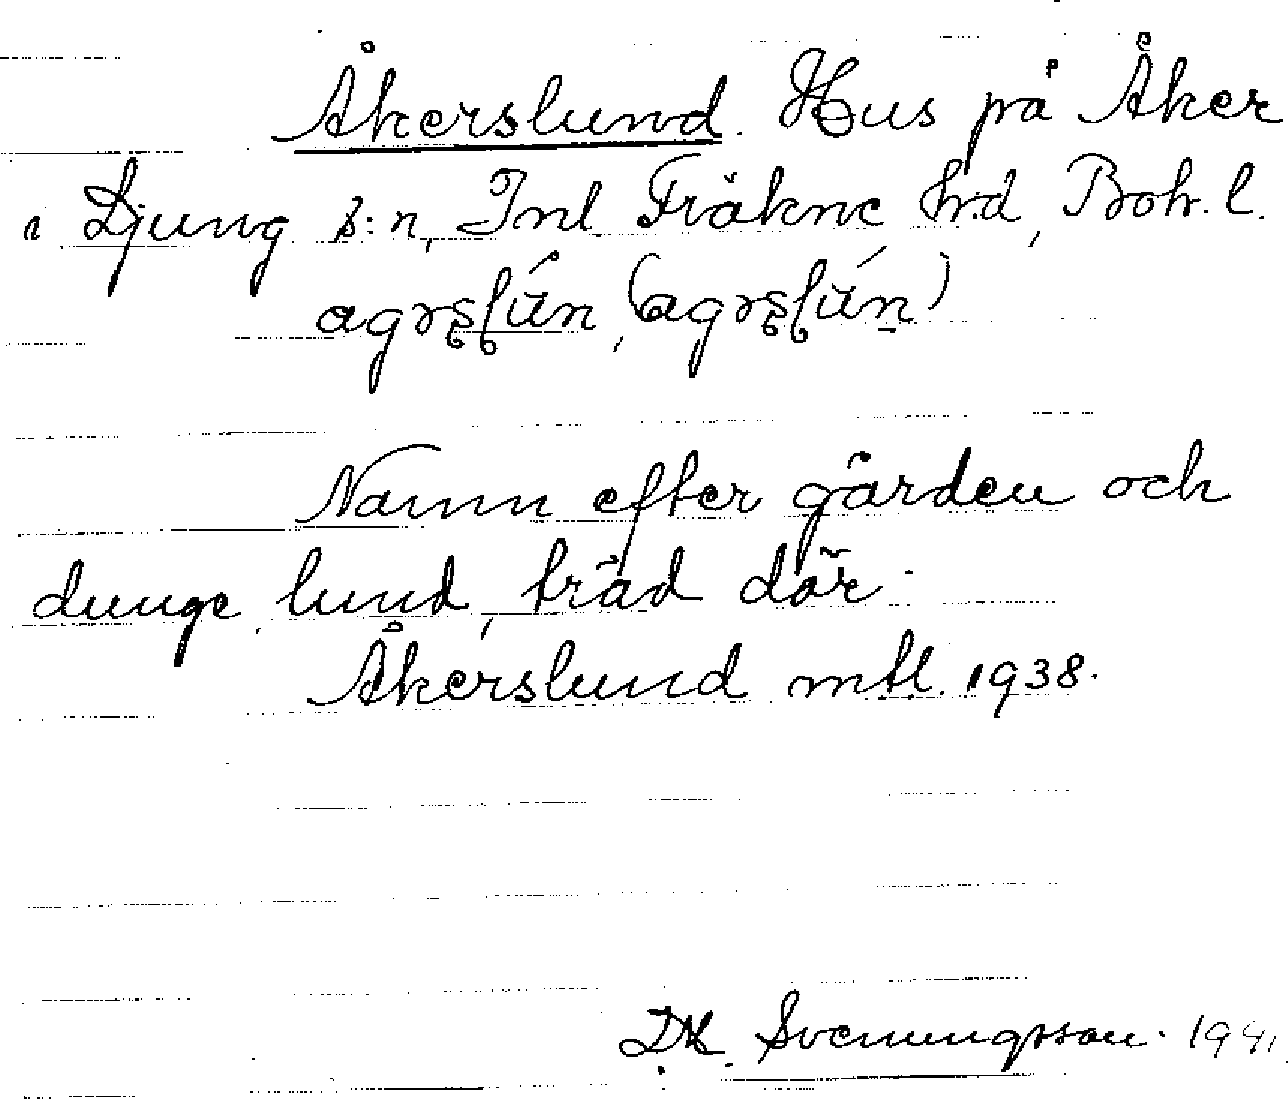 Åkerslund. Hus på Åker
i Ljung s:n, Inl. Fräkne hrd, Boh. l.
Namn efter gården och
dunge, lund, träd där.
Åkerslund mtl. 1938.
D.H. Svenungsson. 1941